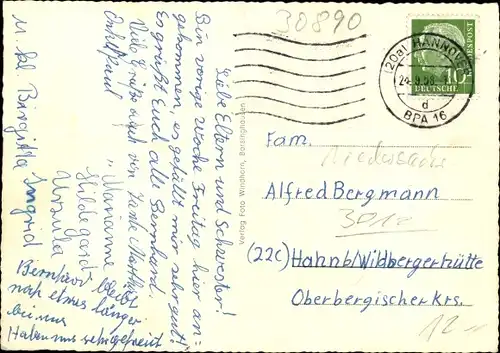 30890
(20a) HANNOVER
24.9.58
d
BPA 16
10
DEUTSCHE
BUNDESPOST
Liebe Eltern und Schwester!
Bin vorige Woche Freitag hier an=
gekommen, es gefällt mir sehr gut!
Es grüßt Euch alle Bernhard.
Viele Grüße auch von Tante Martha
Onkel Paul
" Marianne
Hildegard
Ursula
Ingrid
u. kl. Birgitta
Bernhard bleibt
noch etwas länger
bei uns
Haben uns sehr gefreut
Verlag Foto Windhorn, Barsinghausen
Fam.
Niedersachs
Alfred Bergmann
3012
(22c) Hahnb/Wildbergerhütte
Oberbergischer Krs.
12.-